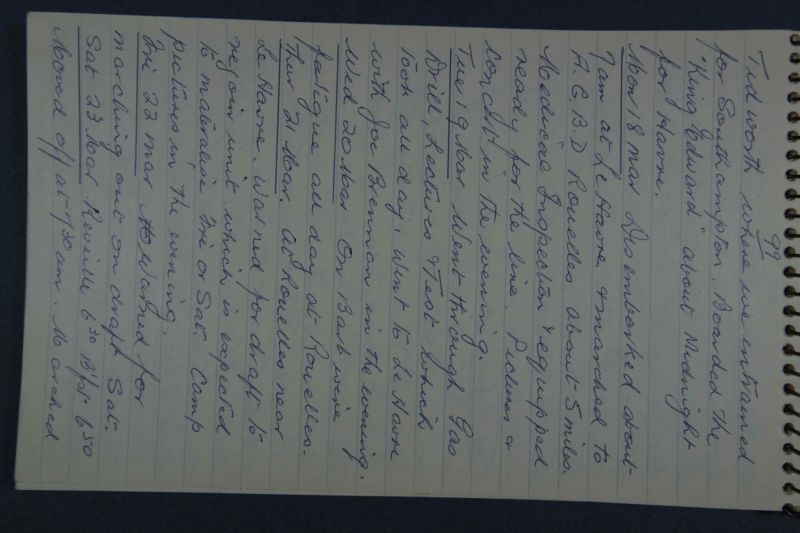 99
Tidworth where we entrained
for Southampton. Boarded the
"King Edward" about Midnight
for Havre.
Mon 18 Mar Disembarked about
7am at Le Havre & marched to
A.G.B.D Rouelles about 5 miles.
Medical Inspection & equipped
ready for the line. Pictures &
concert in the evening.
Tue 19 Mar Went through Gas
Drill, Lectures & Test which
took all day. Went to Le Havre
with Joe Brennan in the evening.
Wed 20 Mar On Barb wire
fatigue all day at Rouelles.
Thur 21 Mar At Rouelles near
Le Havre. Warned for draft to
rejoin unit which is expected
to materialise Fri or Sat. Camp
pictures in the evening.
Fri 22 Mar Warned for
marching out on draft Sat.
Sat 23 Mar Reveille 6 30 B'fst 6 50
Moved off at 7 30 am. Marched